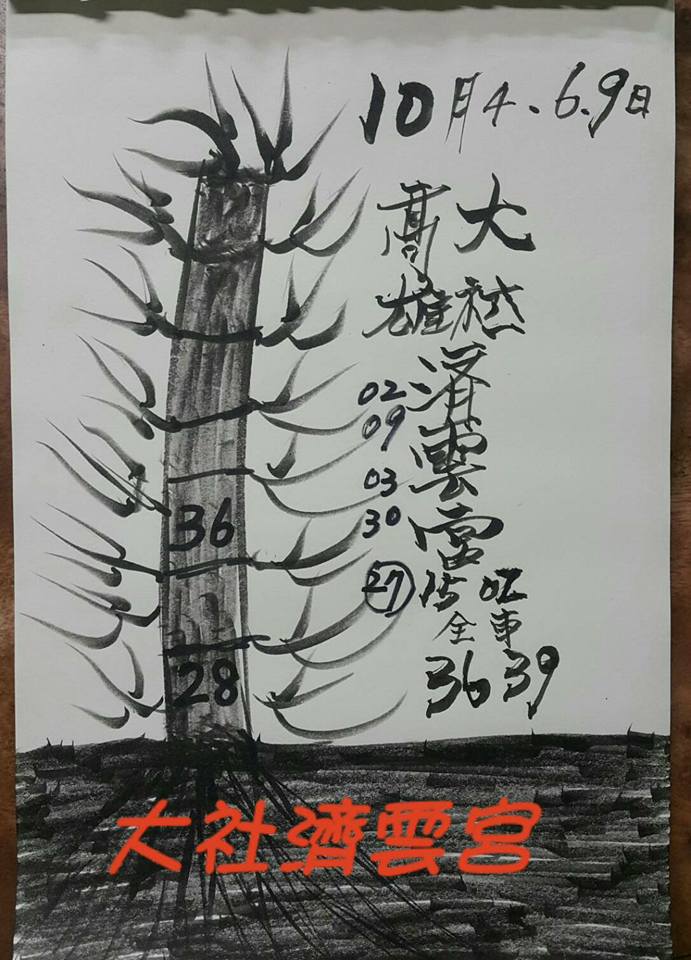 10月4.6.9日
高雄
大社
濟雲宮
02
09
03
30
27 15 02
全車
36 39
36
28
大社濟雲宮